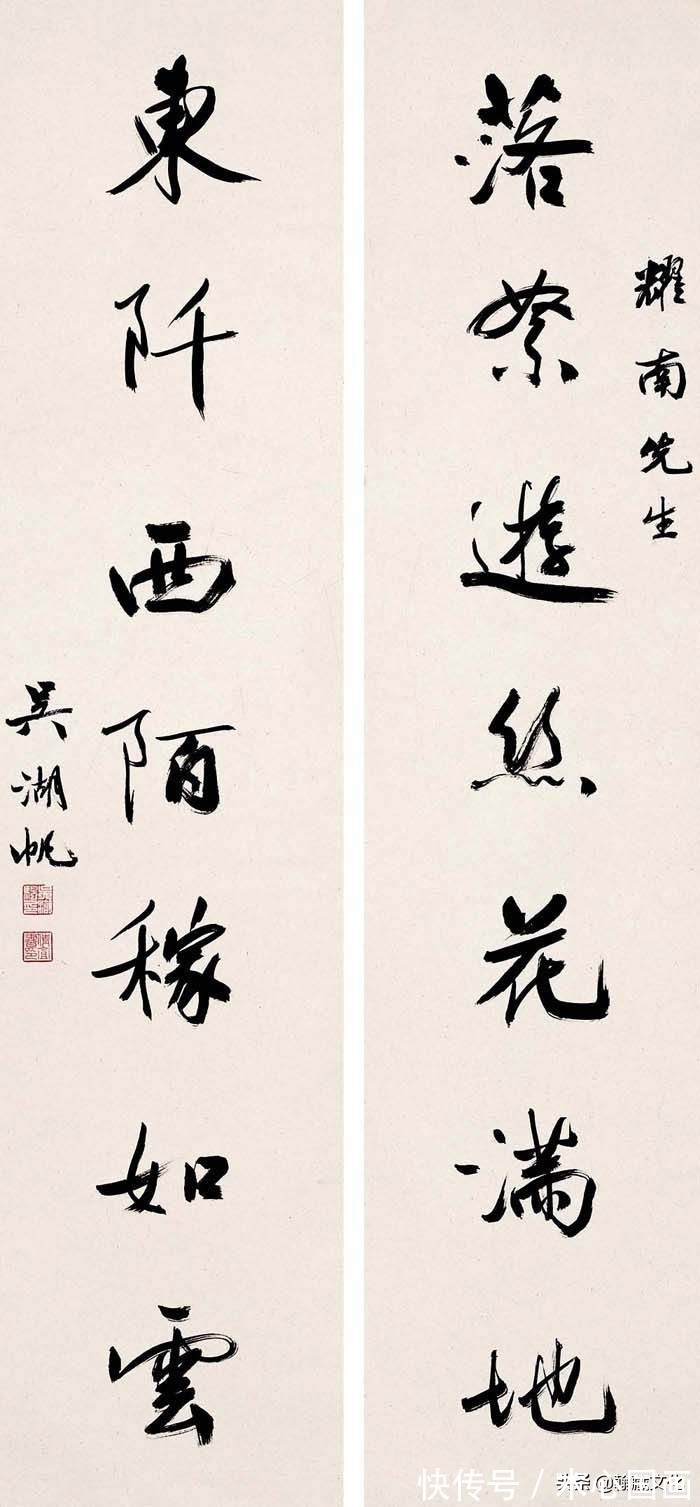 耀南先生
落絮遊絲花滿地
東阡西陌稼如雲
吳湖帆
快传号 /